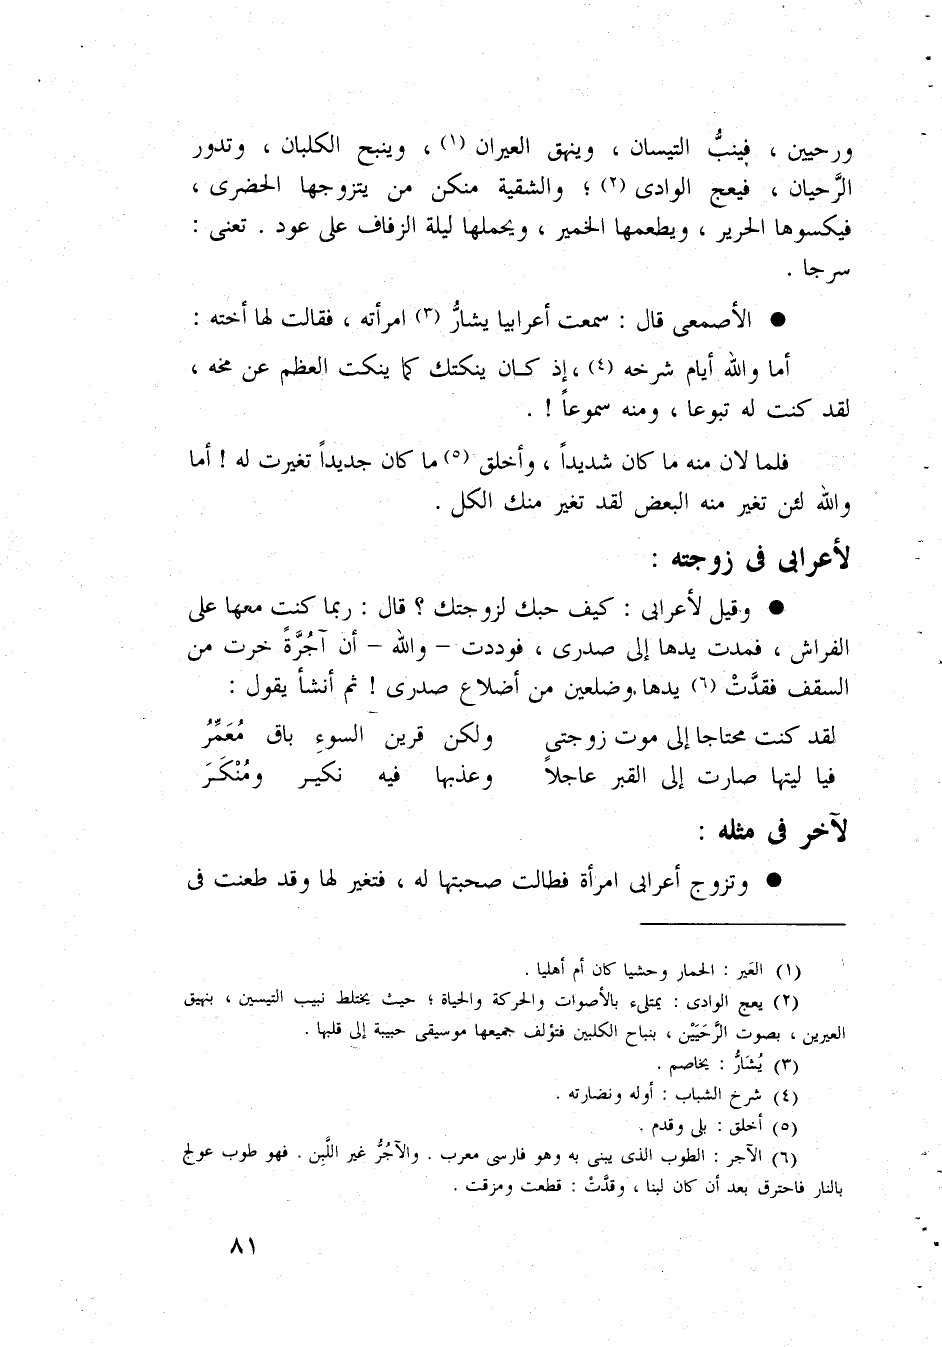 ورحيين ، فينبُّ التيسان ، وينهق العيران (١) ، وينبح الكلبان ، وتدور
الرَّحيان ، فيعج الوادى (٢) ؛ والشقية منكن من يتزوجها الحضرى ،
فيكسوها الحرير ، ويطعمها الخمير ، ويحملها ليلة الزفاف على عود . تعنى :
سرجا .
● الأصمعى قال : سمعت أعرابيا يشارُّ (٣) امرأته ، فقالت لها أخته :
أما والله أيام شرخه (٤) ، إذ كان ينكتك كما ينكت العظم عن مخه ،
لقد كنت له تبوعا ، ومنه سموعاً ! .
فلما لان منه ما كان شديداً ، وأخلق (٥) ما كان جديداً تغيرت له ! أما
والله لئن تغير منه البعض لقد تغير منك الكل .
لأعرابى فى زوجته :
● وقيل لأعرابى : كيف حبك لزوجتك ؟ قال : ربما كنت معها على
الفراش ، فمدت يدها إلى صدرى ، فوددت – والله – أن آجُرَّةً خرت من
السقف فقدَّتْ (٦) يدها وضلعين من أضلاع صدرى ! ثم أنشأ يقول :
لقد كنت محتاجا إلى موت زوجتى ولكن قرين السوءِ باق مُعَمِّرُ
فيا ليتها صارت إلى القبر عاجلاً وعذبها فيه نكير ومُنْكَرَ
لآخر فى مثله :
● وتزوج أعرابى امرأة فطالت صحبتها له ، فتغير لها وقد طعنت فى
(١) العَير : الحمار وحشيا كان أم أهليا .
(٢) يعج الوادى : يمتلىء بالأصوات والحركة والحياة ؛ حيث يختلط نبيب التيسين ، بنهيق
العيرين ، بصوت الرَّحَيَيْن ، بنباح الكلبين فتؤلف جميعها موسيقى حبيبة إلى قلبها .
(٣) يُشَارُّ : يخاصم .
(٤) شرخ الشباب : أوله ونضارته .
(٥) أخلق : بلى وقدم .
(٦) الآجر : الطوب الذى يبنى به وهو فارسى معرب . والآجُرُّ غير اللَّبِن . فهو طوب عولج
بالنار فاحترق بعد أن كان لبنا ، وقدَّتْ : قطعت ومزقت .
٨١